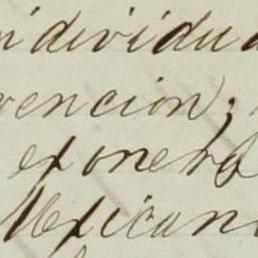 individua
vencion;
exonera
Mexican